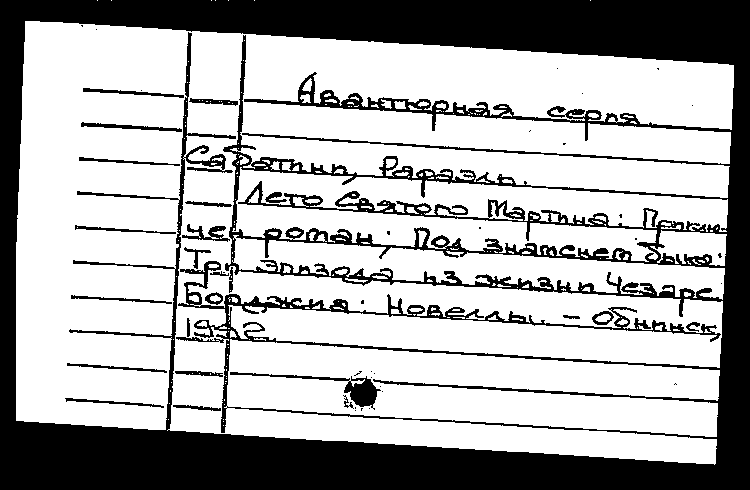 Авантюрная серия.
Сабатини, Рафаэль.
Лето Святого Мартина: Приклю-
чен роман; Под знаменем быка:
Три эпизода из жизни Чезаре
Борджиа: Новеллы. - Обнинск,
1992.